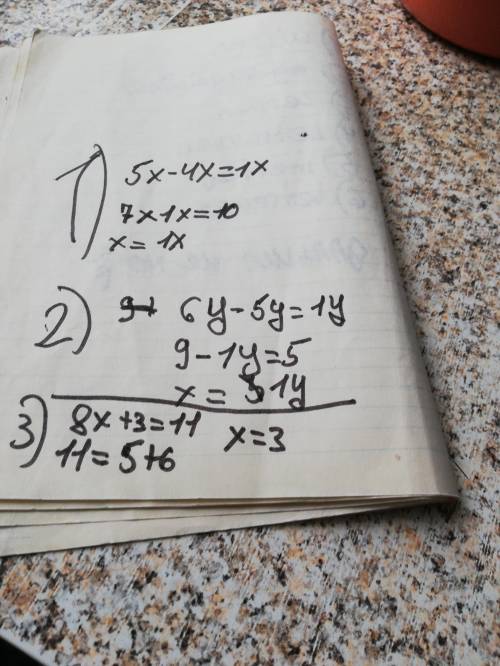 1) 5x-4x=1x
7x1x=10
x=1x
2) 6y-5y=1y
9-1y=5
x=51y
3) 8x+3=11 x=3
11=5+6